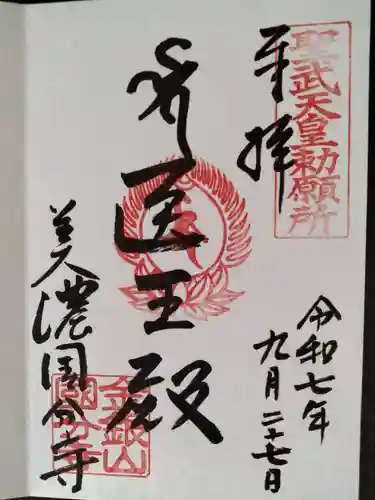 聖武天皇勅願所
奉拝
令和七年
九月二十七日
医王殿
美濃国分寺
金銀山
国分寺